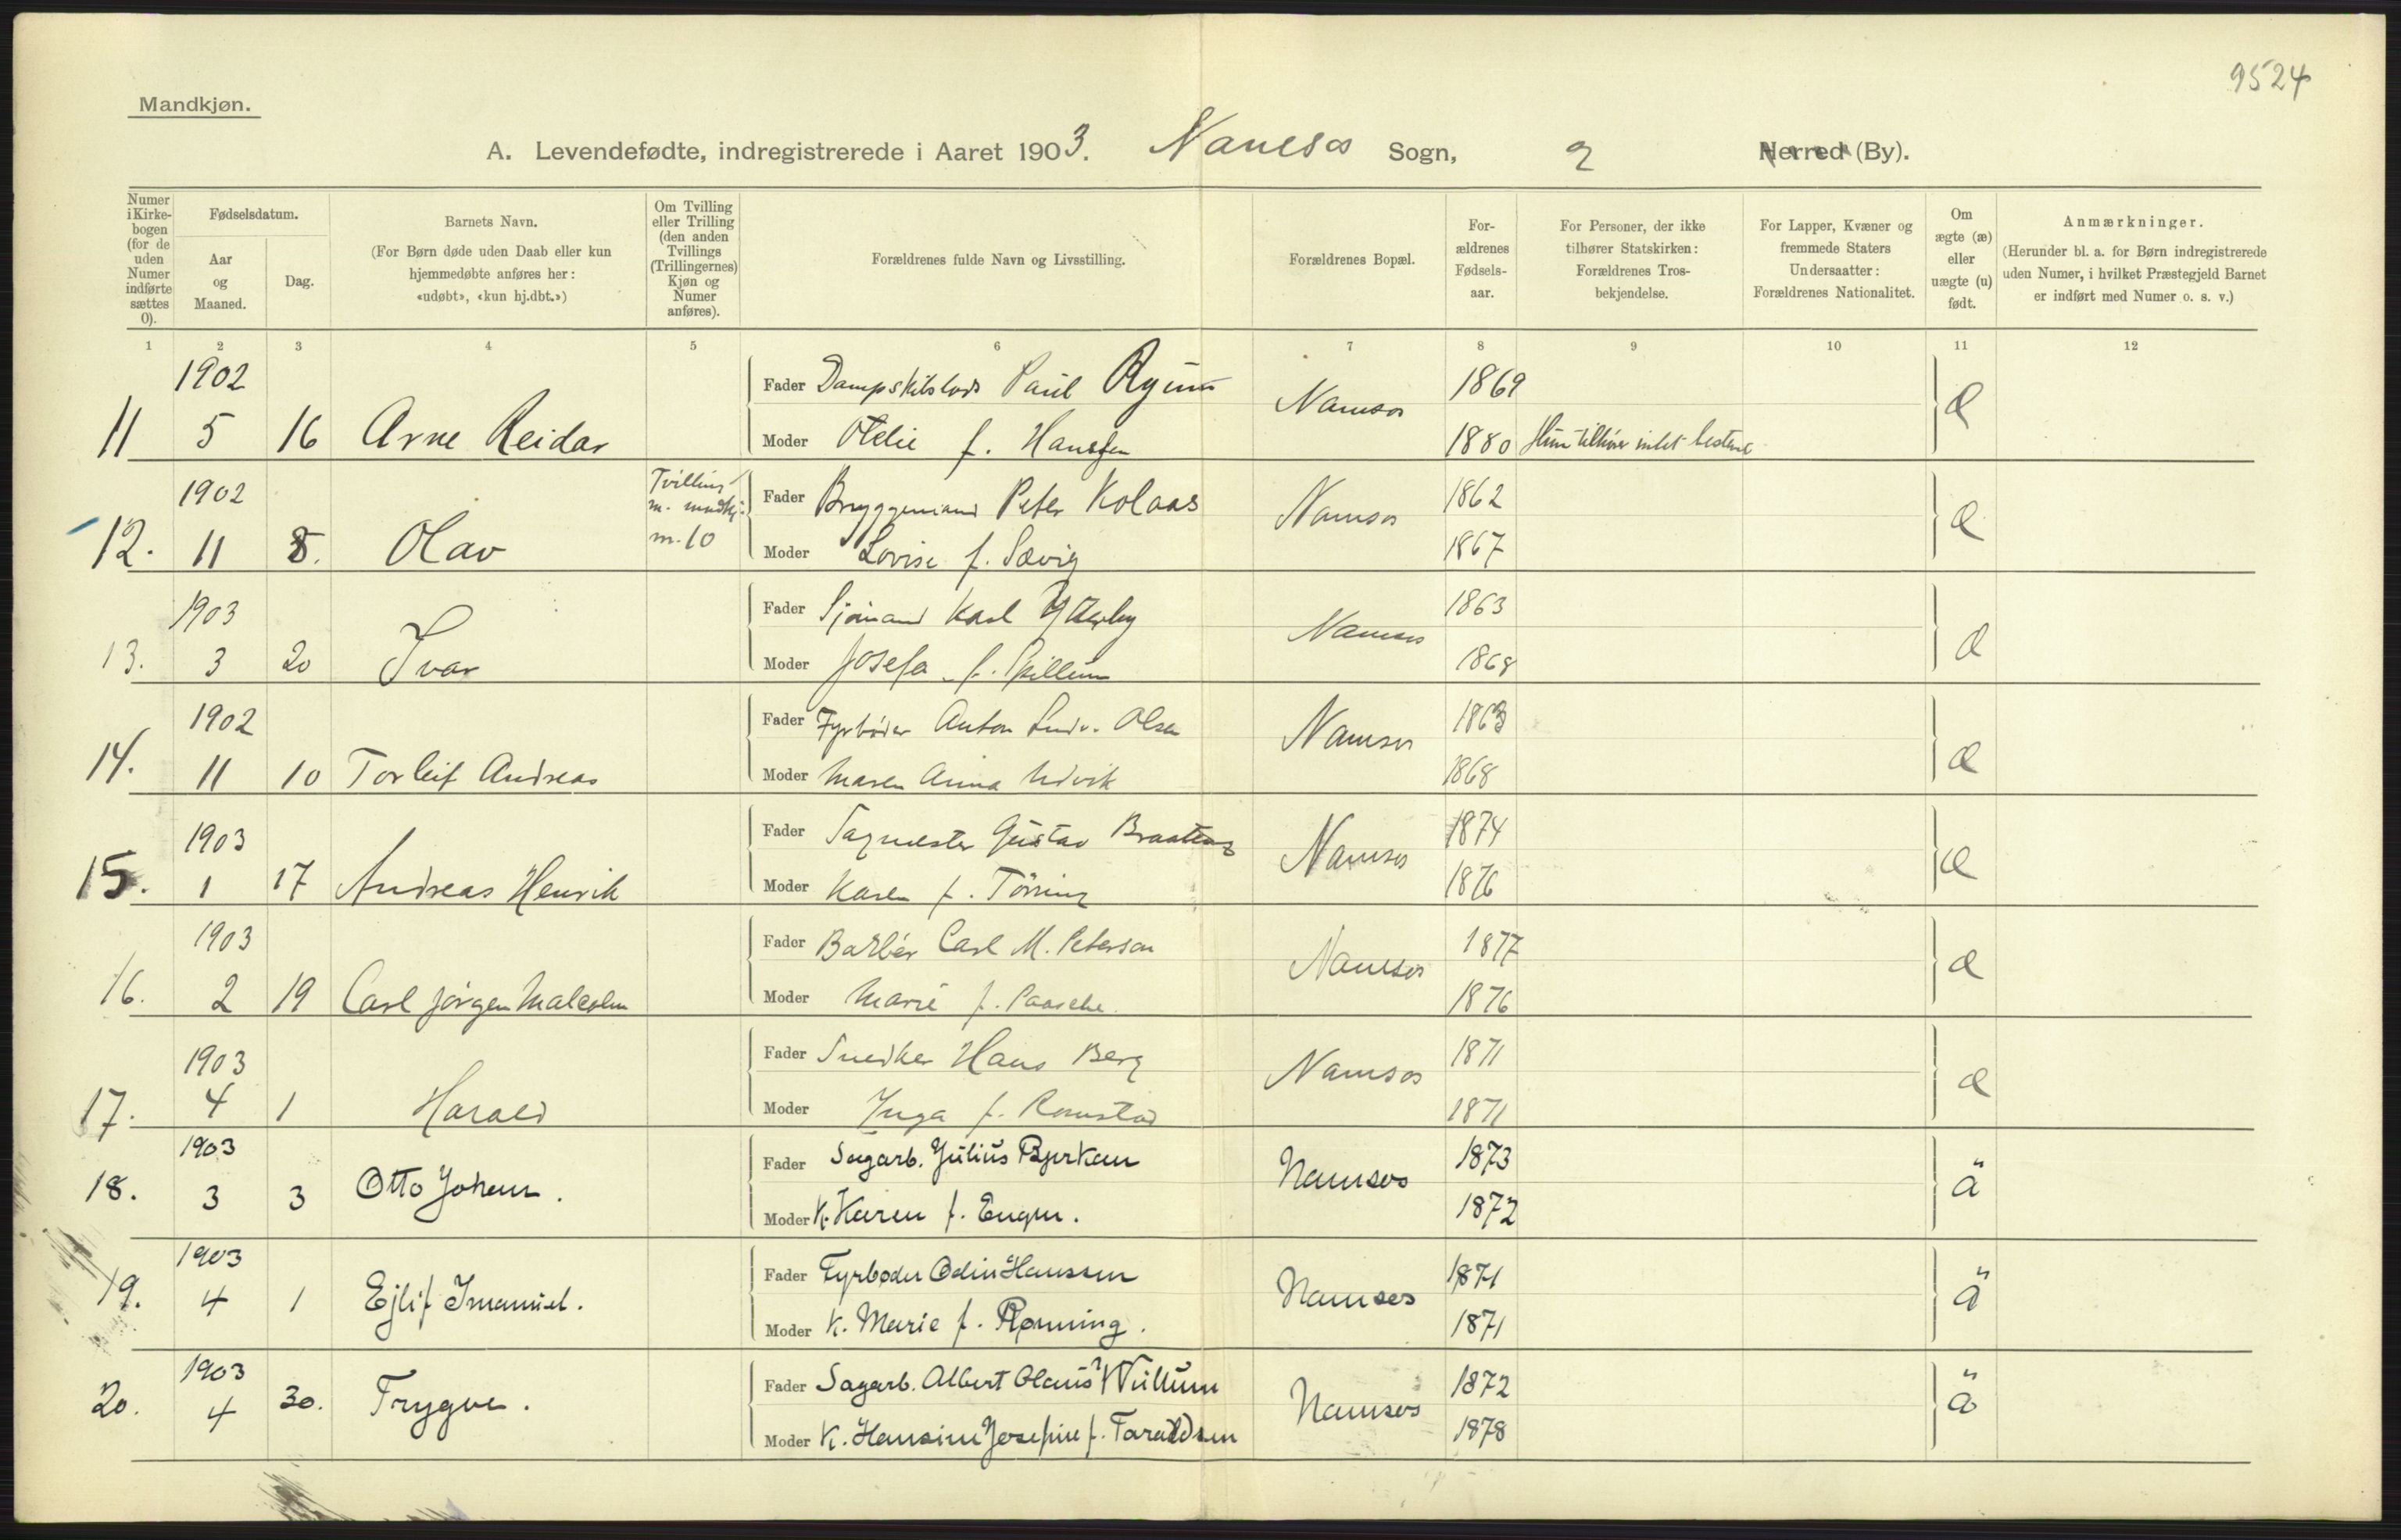 9524
Mandkjøn.
A. Levendefødte, indregistrerede i Aaret 1903. Namsos Sogn, 2 Herred (By).
Numer i Kirke-bogen (for de uden Numer indførte sættes 0).
Fødselsdatum.
Aar og Maaned.
Dag.
Barnets Navn.
(For Børn døde uden Daab eller kun hjemmedøbte anføres her: «udøbt», «kun hj.dbt.»)
Om Tvilling eller Trilling (den anden Tvillings (Trillingernes) Kjøn og Numer anføres).
Forældrenes fulde Navn og Livsstilling.
Forældrenes Bopæl.
For-ældrenes Fødsels-aar.
For Personer, der ikke tilhører Statskirken: Forældrenes Tros-bekjendelse.
For Lapper, Kvæner og fremmede Staters Undersaatter: Forældrenes Nationalitet.
Om ægte (æ) eller uægte (u) født.
Anmærkninger.
(Herunder bl. a. for Børn indregistrerede uden Numer, i hvilket Præstegjeld Barnet er indført med Numer o. s. v.)
1 2 3 4 5 6 7 8 9 10 11 12
1902 Fader Paul Ryum Namsos 1869 æ
11 5 16 Arne Reidar Moder Otelie f. Hanssen 1880 Hun tilhører intet bestemt
1902 Tvilling m. Fader Bryggemand Peter Kolaas Namsos 1862 æ
12. 11 8. Olav m. 10 Moder Lovise f. Sævig 1867
1903 Fader Sjømand Karl Ytterby Namsos 1863 æ
13. 3 20 Ivar Moder Josefa f. Spillum 1868
1902 Fader Fyrbøder Anton Ludv. Olsen Namsos 1863 æ
14. 11 10 Torleif Andreas Moder Maren Anna Udvik 1868
1903 Fader Sagmester Gustav Braaten Namsos 1874 æ
15. 1 17 Andreas Henrik Moder Karen f. Tørring 1876
1903 Fader Barbér Carl M. Peterson Namsos 1877 æ
16. 2 19 Carl Jörgen Malcolm Moder Marie f. Paasche. 1876
1903 Fader Snedker Hans Berg Namsos 1871 æ
17. 4 1 Harald Moder Inga f. Romstad 1871
1903 Fader Sagarb. Julius Bjørkan Namsos 1873 ä
18. 3 3 Otto Johan. Moder K. Karen f. Engen. 1872
1903 Fader Fyrbøder Odin Hanssen Namsos 1871 ä
19. 4 1 Ejlif Imanuel. Moder K. Marie f. Rønning. 1871
1903 Fader Sagarb. Albert Olaus Wullum Namsos 1872 ä
20. 4 30. Trygve. Moder K. Hansine Josefine f. Faraldsen 1878